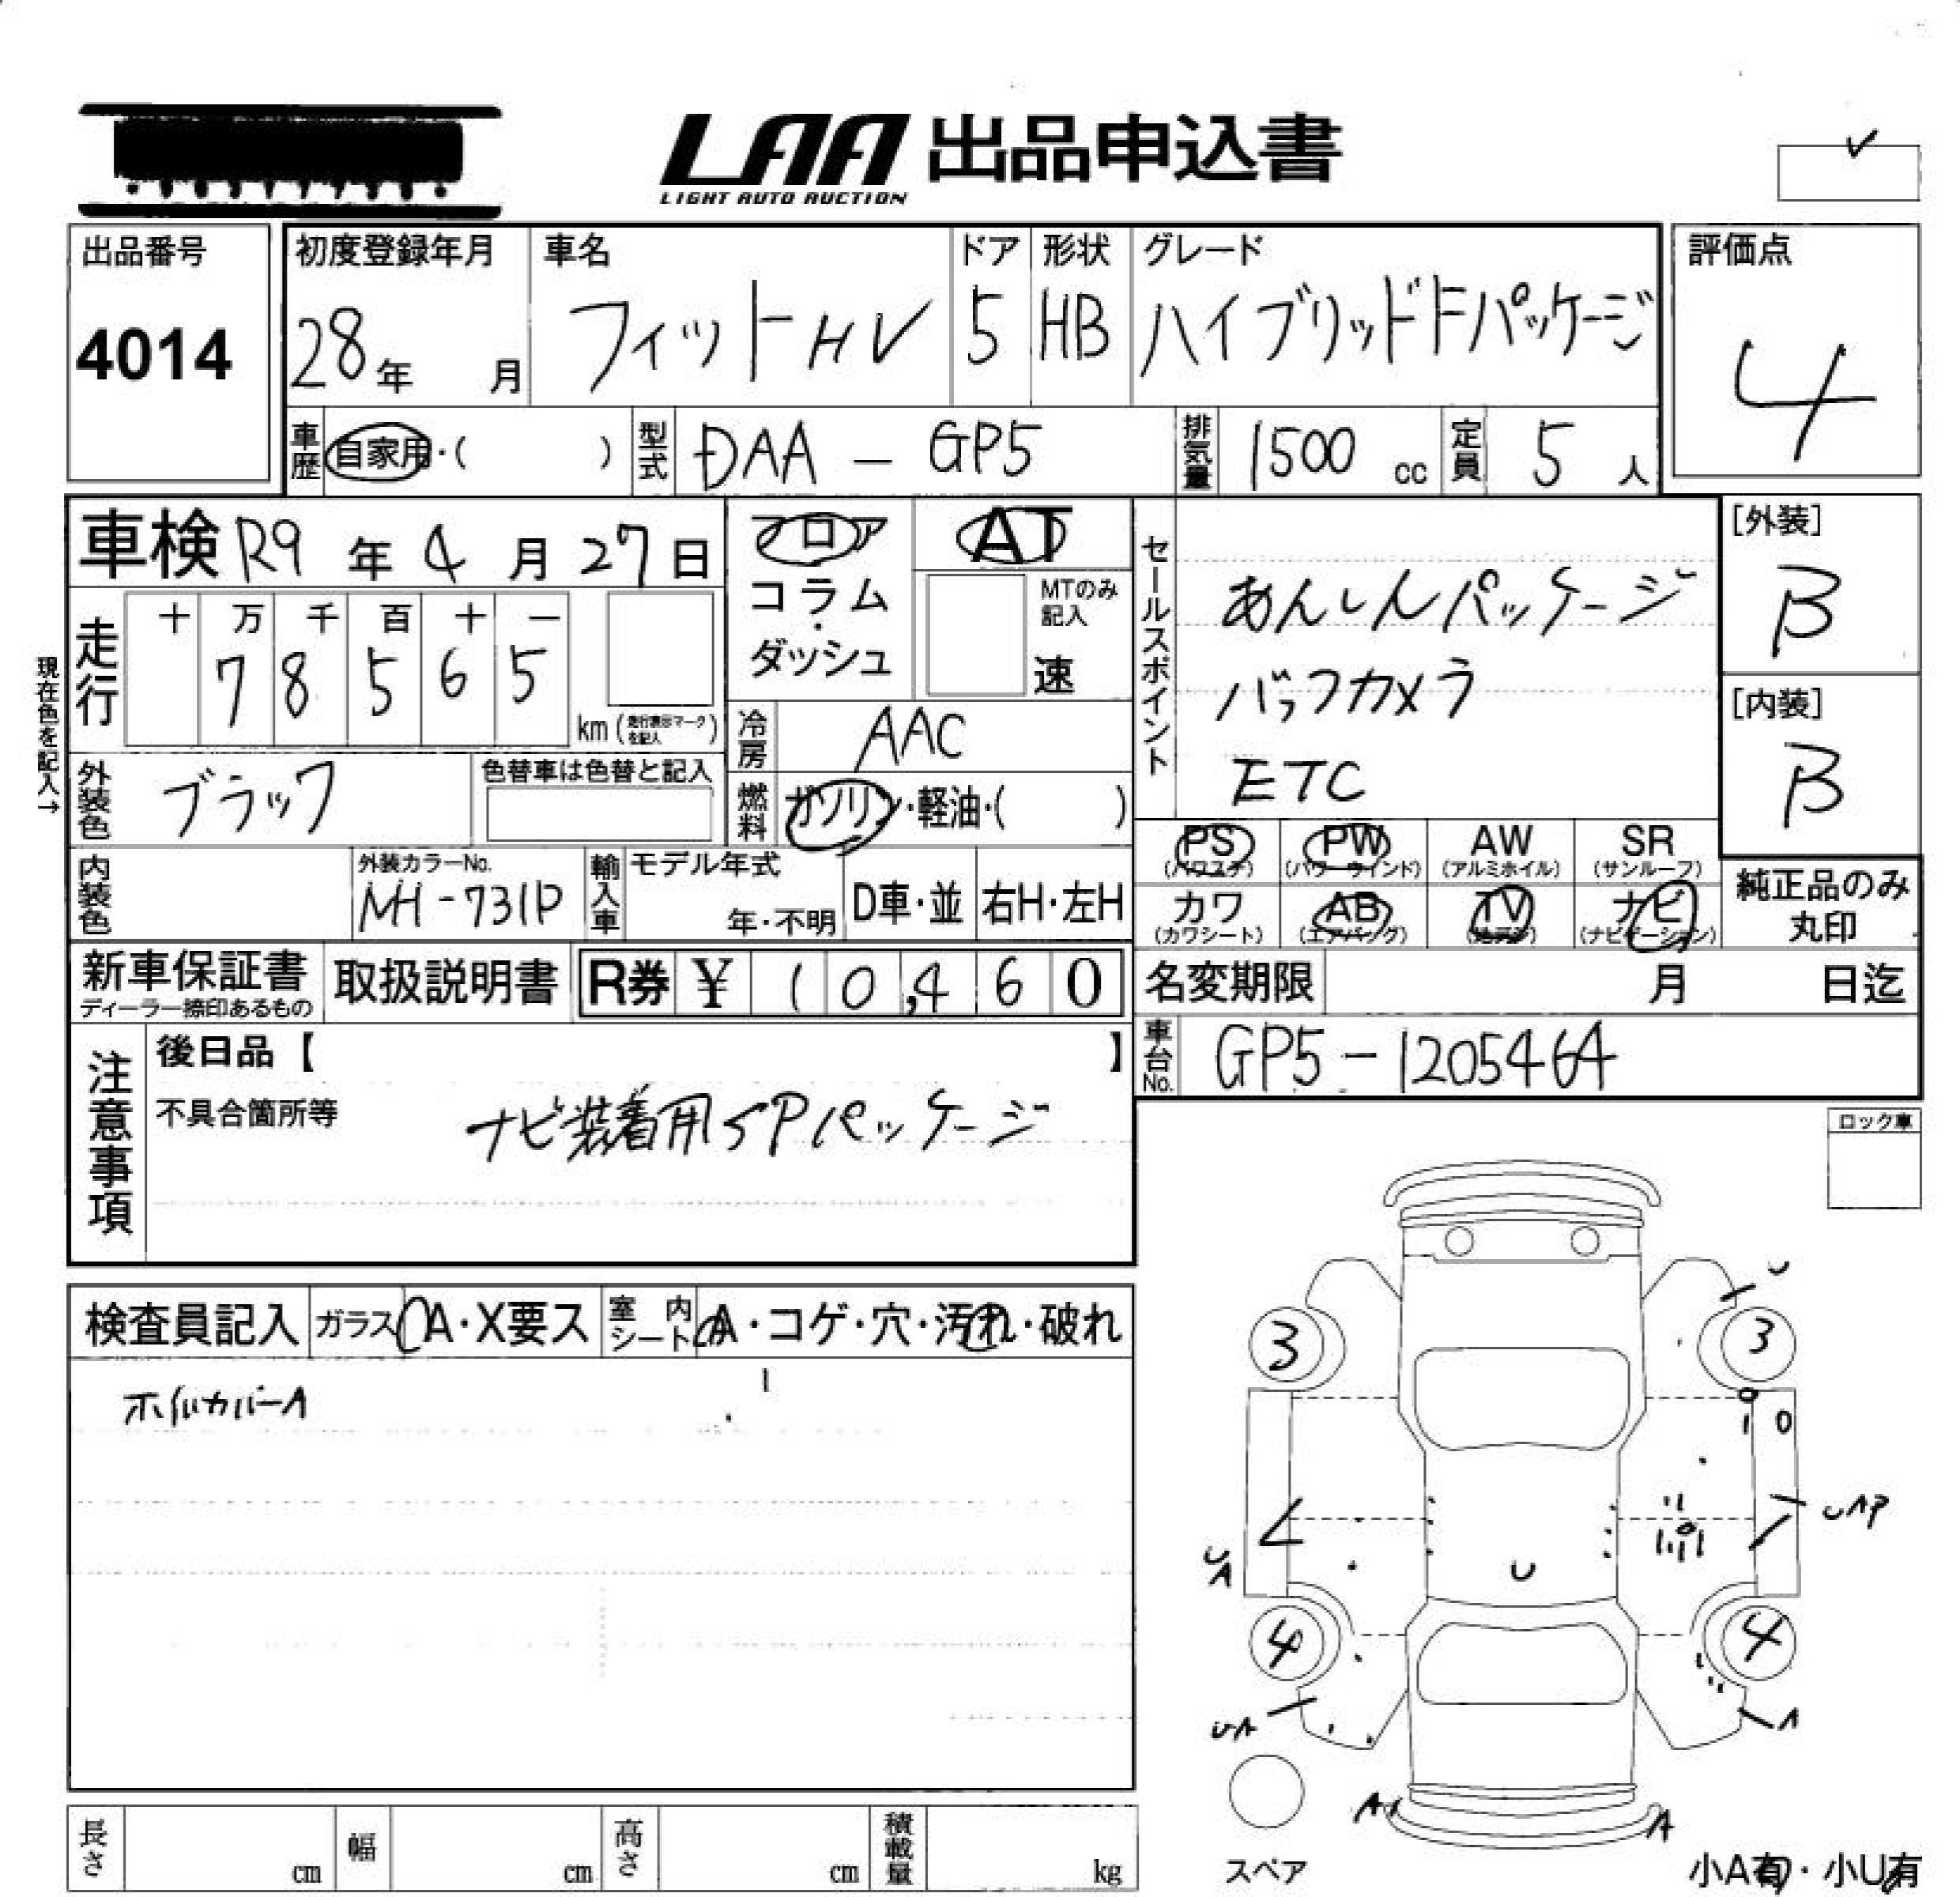 LAA 出品申込書
LIGHT AUTO AUCTION
出品番号
4014
初度登録年月
28年 月
車名
フィットHV
ドア
5
形状
HB
グレード
ハイブリッドFパッケージ
評価点
4
車歴 自家用・( )
型式 DAA-GP5
排気量 1500 cc
定員 5 人
車検 R9年4月27日
フロア
コラム
・
ダッシュ
AT
MTのみ
記入
速
セールスポイント
あんしんパッケージ
バックカメラ
ETC
[外装]
B
[内装]
B
現在色を記入→
走行
十 万 千 百 十 一
7 8 5 6 5
km (走行表示マークを記入)
冷房 AAC
燃料 ガソリン・軽油・( )
外装色 ブラック
色替車は色替と記入
PS
(パワステ)
PW
(パワーウインド)
AW
(アルミホイル)
SR
(サンルーフ)
カワ
(カワシート)
AB
(エアバッグ)
TV
ナビ
(ナビゲーション)
純正品のみ
丸印
内装色
外装カラーNo.
NH-731P
輸入車
モデル年式
年・不明
D車・並
右H・左H
新車保証書
ディーラー捺印あるもの
取扱説明書
R券 ¥ 10,460
名変期限 月 日迄
車台No. GP5-1205464
注意事項
後日品【 】
不具合箇所等
ナビ装着用SPパッケージ
ロック車
検査員記入
ガラス A・X要ス
室内シート A・コゲ・穴・汚れ・破れ
ホイルカバーA
U
3
3
UAP
UA
U
4
4
UA
A
A
A
スペア
小A有・小U有
長さ cm
幅 cm
高さ cm
積載量 kg